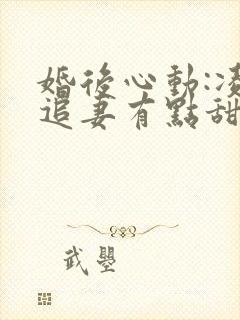 婚後心動:凌
追妻有點甜
武墨